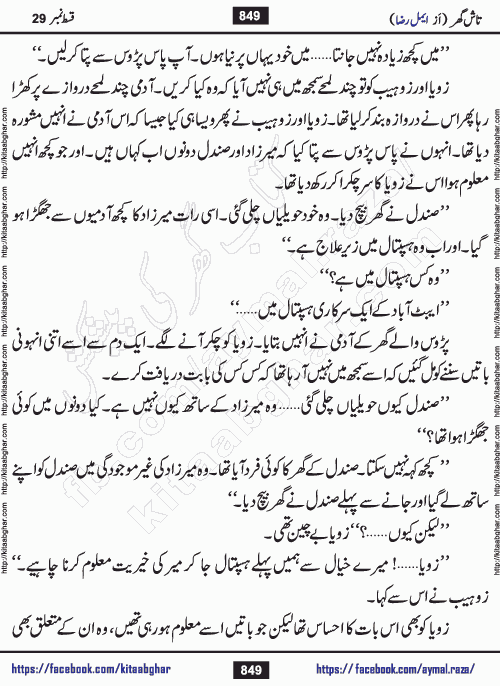 تاش گھر (از ایمل رضا)
849
قسط نمبر 29
’’میں کچھ زیادہ نہیں جانتا......میں خود یہاں پر نیا ہوں۔ آپ پاس پڑوس سے پتا کر لیں۔‘‘
زویا اور زوہیب کو تو چند لمحے سمجھ میں ہی نہیں آیا کہ وہ کیا کریں۔ آدمی چند لمحے دروازے پر کھڑا
رہا پھر اس نے دروازہ بند کر لیا تھا۔ زویا اور زوہیب نے پھر ویسا ہی کیا جیسا کہ اس آدمی نے انہیں مشورہ
دیا تھا۔ انہوں نے پاس پڑوس سے پتا کیا کہ میرزاد اور صندل دونوں اب کہاں ہیں۔ اور جو کچھ انہیں
معلوم ہوا اس نے زویا کا سر چکرا کر رکھ دیا تھا۔
’’صندل نے گھر بیچ دیا۔ وہ خود حویلیاں چلی گئی۔ اسی رات میرزاد کا کچھ آدمیوں سے جھگڑا ہو
گیا۔ اور اب وہ ہسپتال میں زیر علاج ہے۔‘‘
’’وہ کس ہسپتال میں ہے؟‘‘
’’ایبٹ آباد کے ایک سرکاری ہسپتال میں......‘‘
پڑوس والے گھر کے آدمی نے انہیں بتایا۔ زویا کو چکر آنے لگے۔ ایک دم سے اسے اتنی انہونی
باتیں سننے کو مل گئیں کہ اسے سمجھ میں نہیں آ رہا تھا کہ کس کس کی بابت دریافت کرے۔
’’صندل کیوں حویلیاں چلی گئی......وہ میرزاد کے ساتھ کیوں نہیں ہے۔ کیا دونوں میں کوئی
جھگڑا ہوا تھا؟‘‘
’’کچھ کہہ نہیں سکتا۔ صندل کے گھر کا کوئی فرد آیا تھا۔ وہ میرزاد کی غیر موجودگی میں صندل کو اپنے
ساتھ لے گیا اور جانے سے پہلے صندل نے گھر بیچ دیا۔‘‘
’’لیکن کیوں......؟‘‘ زویا بے چین تھی۔
’’زویا......! میرے خیال سے ہمیں پہلے ہسپتال جا کر میر کی خیریت معلوم کرنا چاہیے۔‘‘
زوہیب نے اس سے کہا۔
زویا کو بھی اس بات کا احساس تھا لیکن جو باتیں اسے معلوم ہو رہی تھیں، وہ ان کے متعلق بھی
http://kitaabghar.com http://kitaabghar.com http://kitaabghar.com http://kitaabghar.com http://kitaabghar.com http://kitaabghar.com
http://kitaabghar.com http://kitaabghar.com http://kitaabghar.com http://kitaabghar.com http://kitaabghar.com http://kitaabghar.com
https://facebook.com/kitaabghar
849
https://facebook.com/aymal.raza/